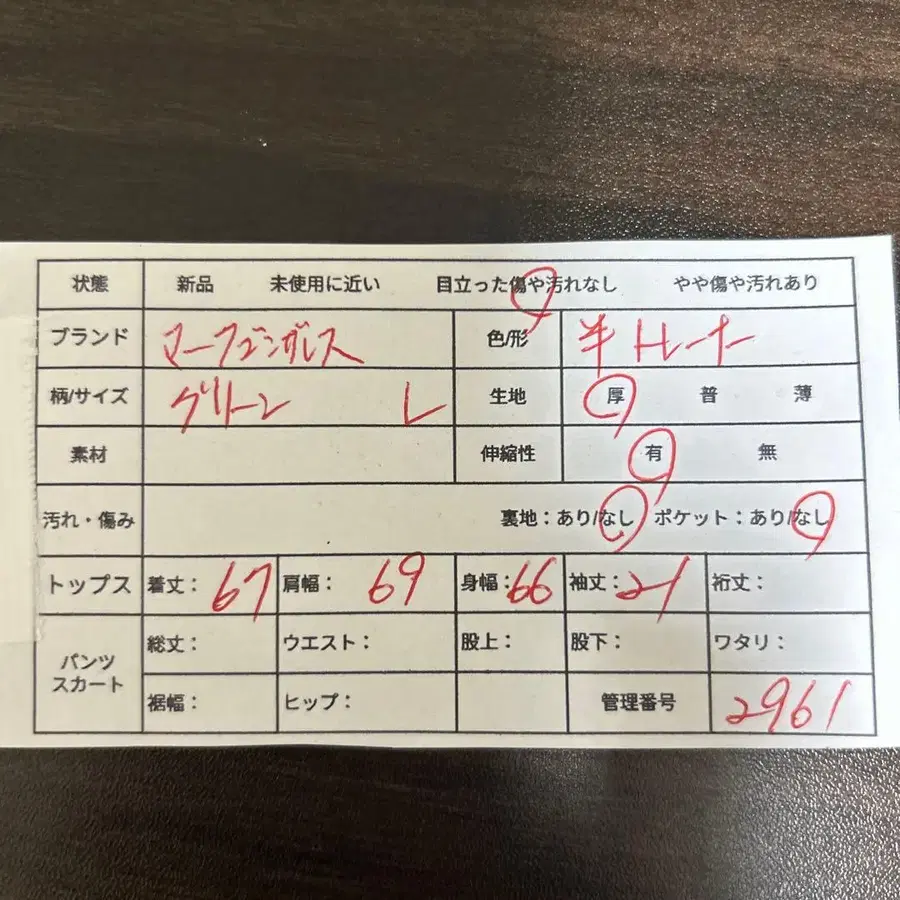 状態 新品 未使用に近い 目立った傷や汚れなし やや傷や汚れあり
ブランド マークゴンザレス 色/形 半 トレーナー
柄/サイズ グリーン L 生地 厚 普 薄
素材 伸縮性 有 無
汚れ・傷み 裏地：あり/なし ポケット：あり/なし
トップス 着丈：67 肩幅：69 身幅：66 袖丈：21 裄丈：
パンツ スカート 総丈： ウエスト： 股上： 股下： ワタリ：
裾幅： ヒップ： 管理番号 2961